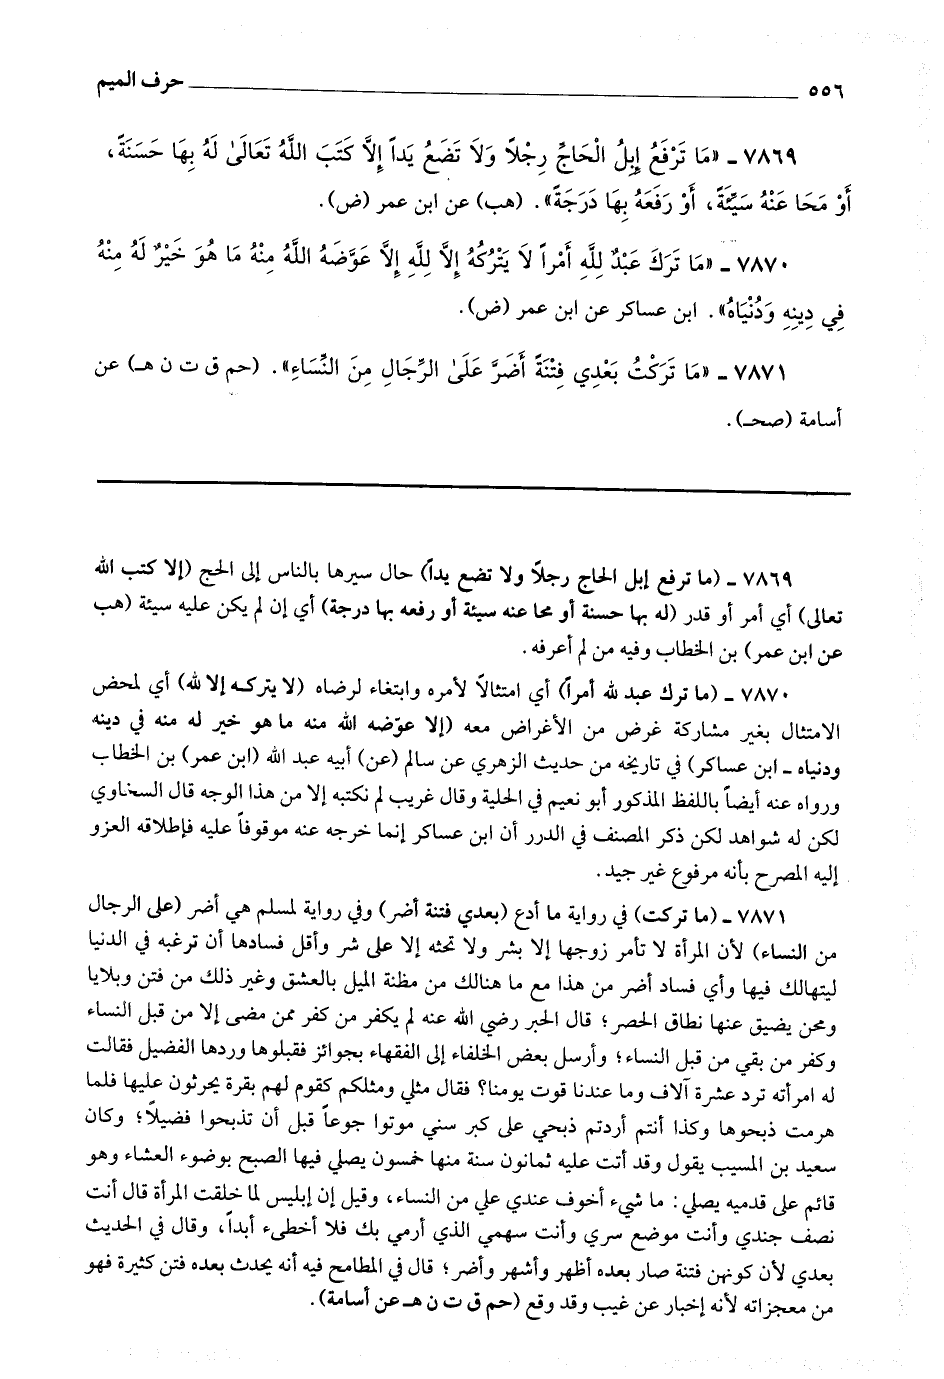 ٥٥٦ حرف الميم
٧٨٦٩ ـ «مَا تَرْفَعُ إِبِلُ الْحَاجِّ رِجْلاً وَلَا تَضَعُ يَداً إِلَّا كَتَبَ اللَّهُ تَعَالَىٰ لَهُ بِهَا حَسَنَةً،
أَوْ مَحَا عَنْهُ سَيِّئَةً، أَوْ رَفَعَهُ بِهَا دَرَجَةً». (هب) عن ابن عمر (ض).
٧٨٧٠ ـ «مَا تَرَكَ عَبْدٌ لِلَّهِ أَمْراً لَا يَتْرُكُهُ إِلَّا لِلَّهِ إِلَّا عَوَّضَهُ اللَّهُ مِنْهُ مَا هُوَ خَيْرٌ لَهُ مِنْهُ
فِي دِينِهِ وَدُنْيَاهُ». ابن عساكر عن ابن عمر (ض).
٧٨٧١ ـ «مَا تَرَكْتُ بَعْدِي فِتْنَةً أَضَرَّ عَلَىٰ الرِّجَالِ مِنَ النِّسَاءِ». (حم ق ت ن هـ) عن
أسامة (صحـ).
٧٨٦٩ ـ (ما ترفع إبل الحاج رجلاً ولا تضع يداً) حال سيرها بالناس إلى الحج (إلا كتب الله
تعالى) أي أمر أو قدر (له بها حسنة أو محا عنه سيئة أو رفعه بها درجة) أي إن لم يكن عليه سيئة (هب
عن ابن عمر) بن الخطاب وفيه من لم أعرفه.
٧٨٧٠ ـ (ما ترك عبد لله أمراً) أي امتثالاً لأمره وابتغاء لرضاه (لا يتركه إلا لله) أي لمحض
الامتثال بغير مشاركة غرض من الأغراض معه (إلا عوّضه الله منه ما هو خير له منه في دينه
ودنياه ـ ابن عساكر) في تاريخه من حديث الزهري عن سالم (عن) أبيه عبد الله (ابن عمر) بن الخطاب
ورواه عنه أيضاً باللفظ المذكور أبو نعيم في الحلية وقال غريب لم نكتبه إلا من هذا الوجه قال السخاوي
لكن له شواهد لكن ذكر المصنف في الدرر أن ابن عساكر إنما خرجه عنه موقوفاً عليه فإطلاقه العزو
إليه المصرح بأنه مرفوع غير جيد.
٧٨٧١ ـ (ما تركت) في رواية ما أدع (بعدي فتنة أضر) وفي رواية لمسلم هي أضر (على الرجال
من النساء) لأن المرأة لا تأمر زوجها إلا بشر ولا تحثه إلا على شر وأقل فسادها أن ترغبه في الدنيا
ليتهالك فيها وأي فساد أضر من هذا مع ما هنالك من مظنة الميل بالعشق وغير ذلك من فتن وبلايا
ومحن يضيق عنها نطاق الحصر؛ قال الحبر رضي الله عنه لم يكفر من كفر ممن مضى إلا من قبل النساء
وكفر من بقي من قبل النساء؛ وأرسل بعض الخلفاء إلى الفقهاء بجوائز فقبلوها وردها الفضيل فقالت
له امرأته ترد عشرة آلاف وما عندنا قوت يومنا؟ فقال مثلي ومثلكم كقوم لهم بقرة يحرثون عليها فلما
هرمت ذبحوها وكذا أنتم أردتم ذبحي على كبر سني موتوا جوعاً قبل أن تذبحوا فضيلاً؛ وكان
سعيد بن المسيب يقول وقد أتت عليه ثمانون سنة منها خمسون يصلي فيها الصبح بوضوء العشاء وهو
قائم على قدميه يصلي: ما شيء أخوف عندي علي من النساء، وقيل إن إبليس لما خلقت المرأة قال أنت
نصف جندي وأنت موضع سري وأنت سهمي الذي أرمي بك فلا أخطىء أبداً، وقال في الحديث
بعدي لأن كونهن فتنة صار بعده أظهر وأشهر وأضر؛ قال في المطامح فيه أنه يحدث بعده فتن كثيرة فهو
من معجزاته لأنه إخبار عن غيب وقد وقع (حم ق ت ن هـ عن أسامة).